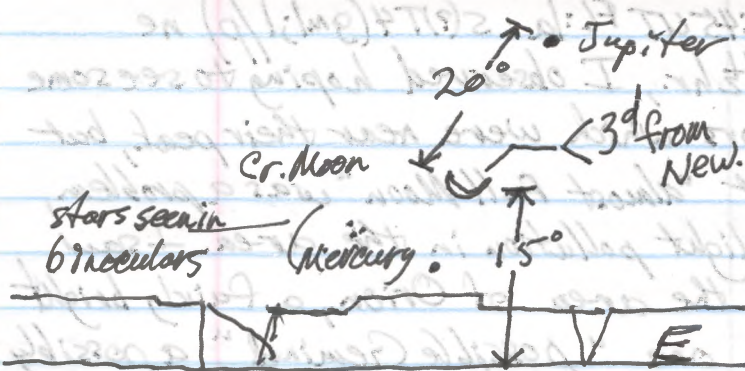 • Jupiter
20°
3d from
New.
Cr. Moon
stars seen in
binoculars
(Mercury. 15°
E